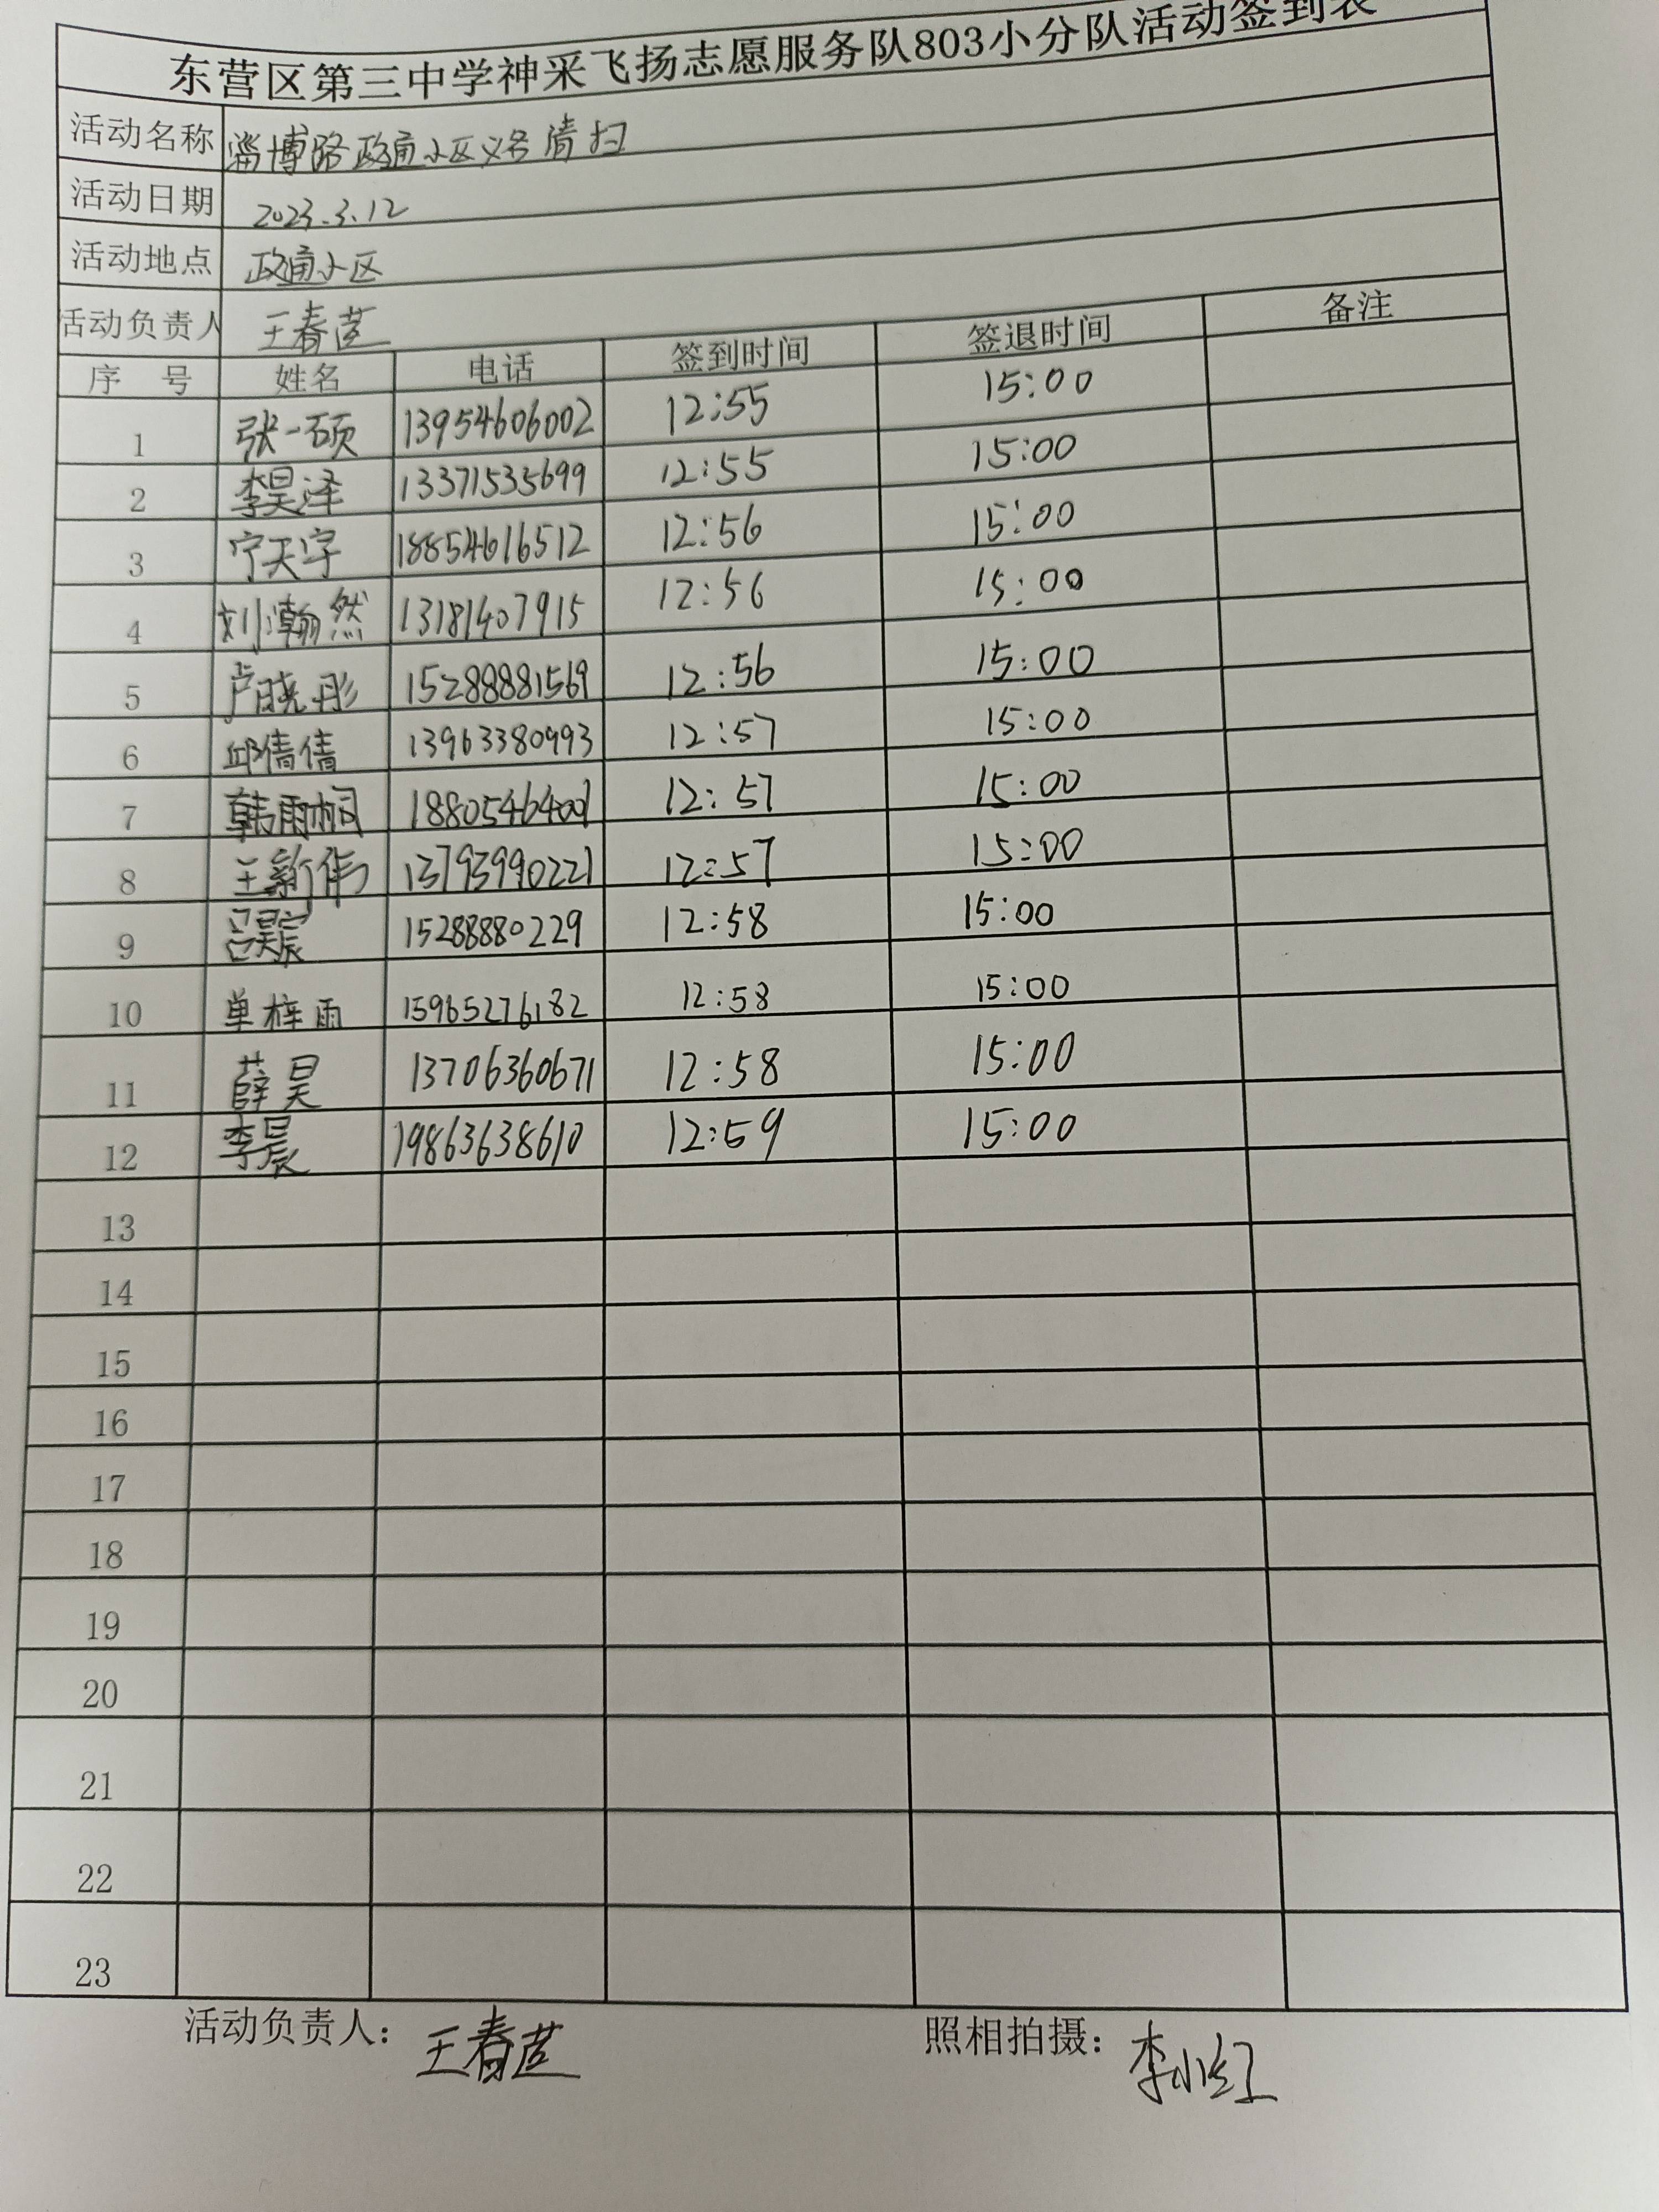 东营区第三中学神采飞扬志愿服务队803小分队活动签到表
活动名称 淄博路政通小区义务清扫
活动日期 2023.3.12
活动地点 政通小区
活动负责人 王春苣
序 号 姓名 电话 签到时间 签退时间 备注
1 张一硕 13954606002 12:55 15:00
2 李昊泽 13371535699 12:55 15:00
3 宁天宇 18854616512 12:56 15:00
4 刘瀚然 13181407915 12:56 15:00
5 卢晓彤 15288881569 12:56 15:00
6 邱倩倩 13963380993 12:57 15:00
7 韩雨桐 18805464001 12:57 15:00
8 王新伟 13793990221 12:57 15:00
9 吕昊宸 15288880229 12:58 15:00
10 单梓雨 15965276182 12:58 15:00
11 薛昊 13706360671 12:58 15:00
12 李晨 19863638610 12:59 15:00
13
14
15
16
17
18
19
20
21
22
23
活动负责人：王春苣 照相拍摄：李小红